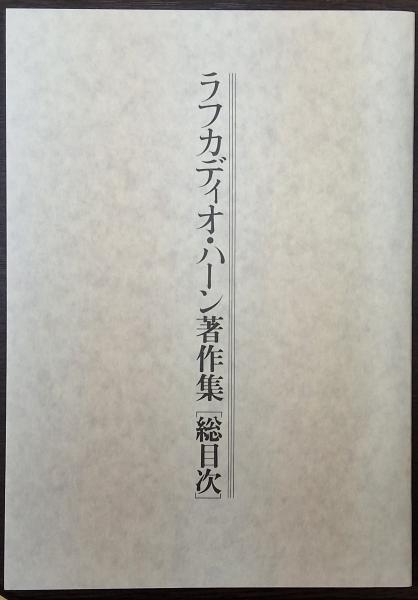 ラフカディオ・ハーン著作集[総目次]